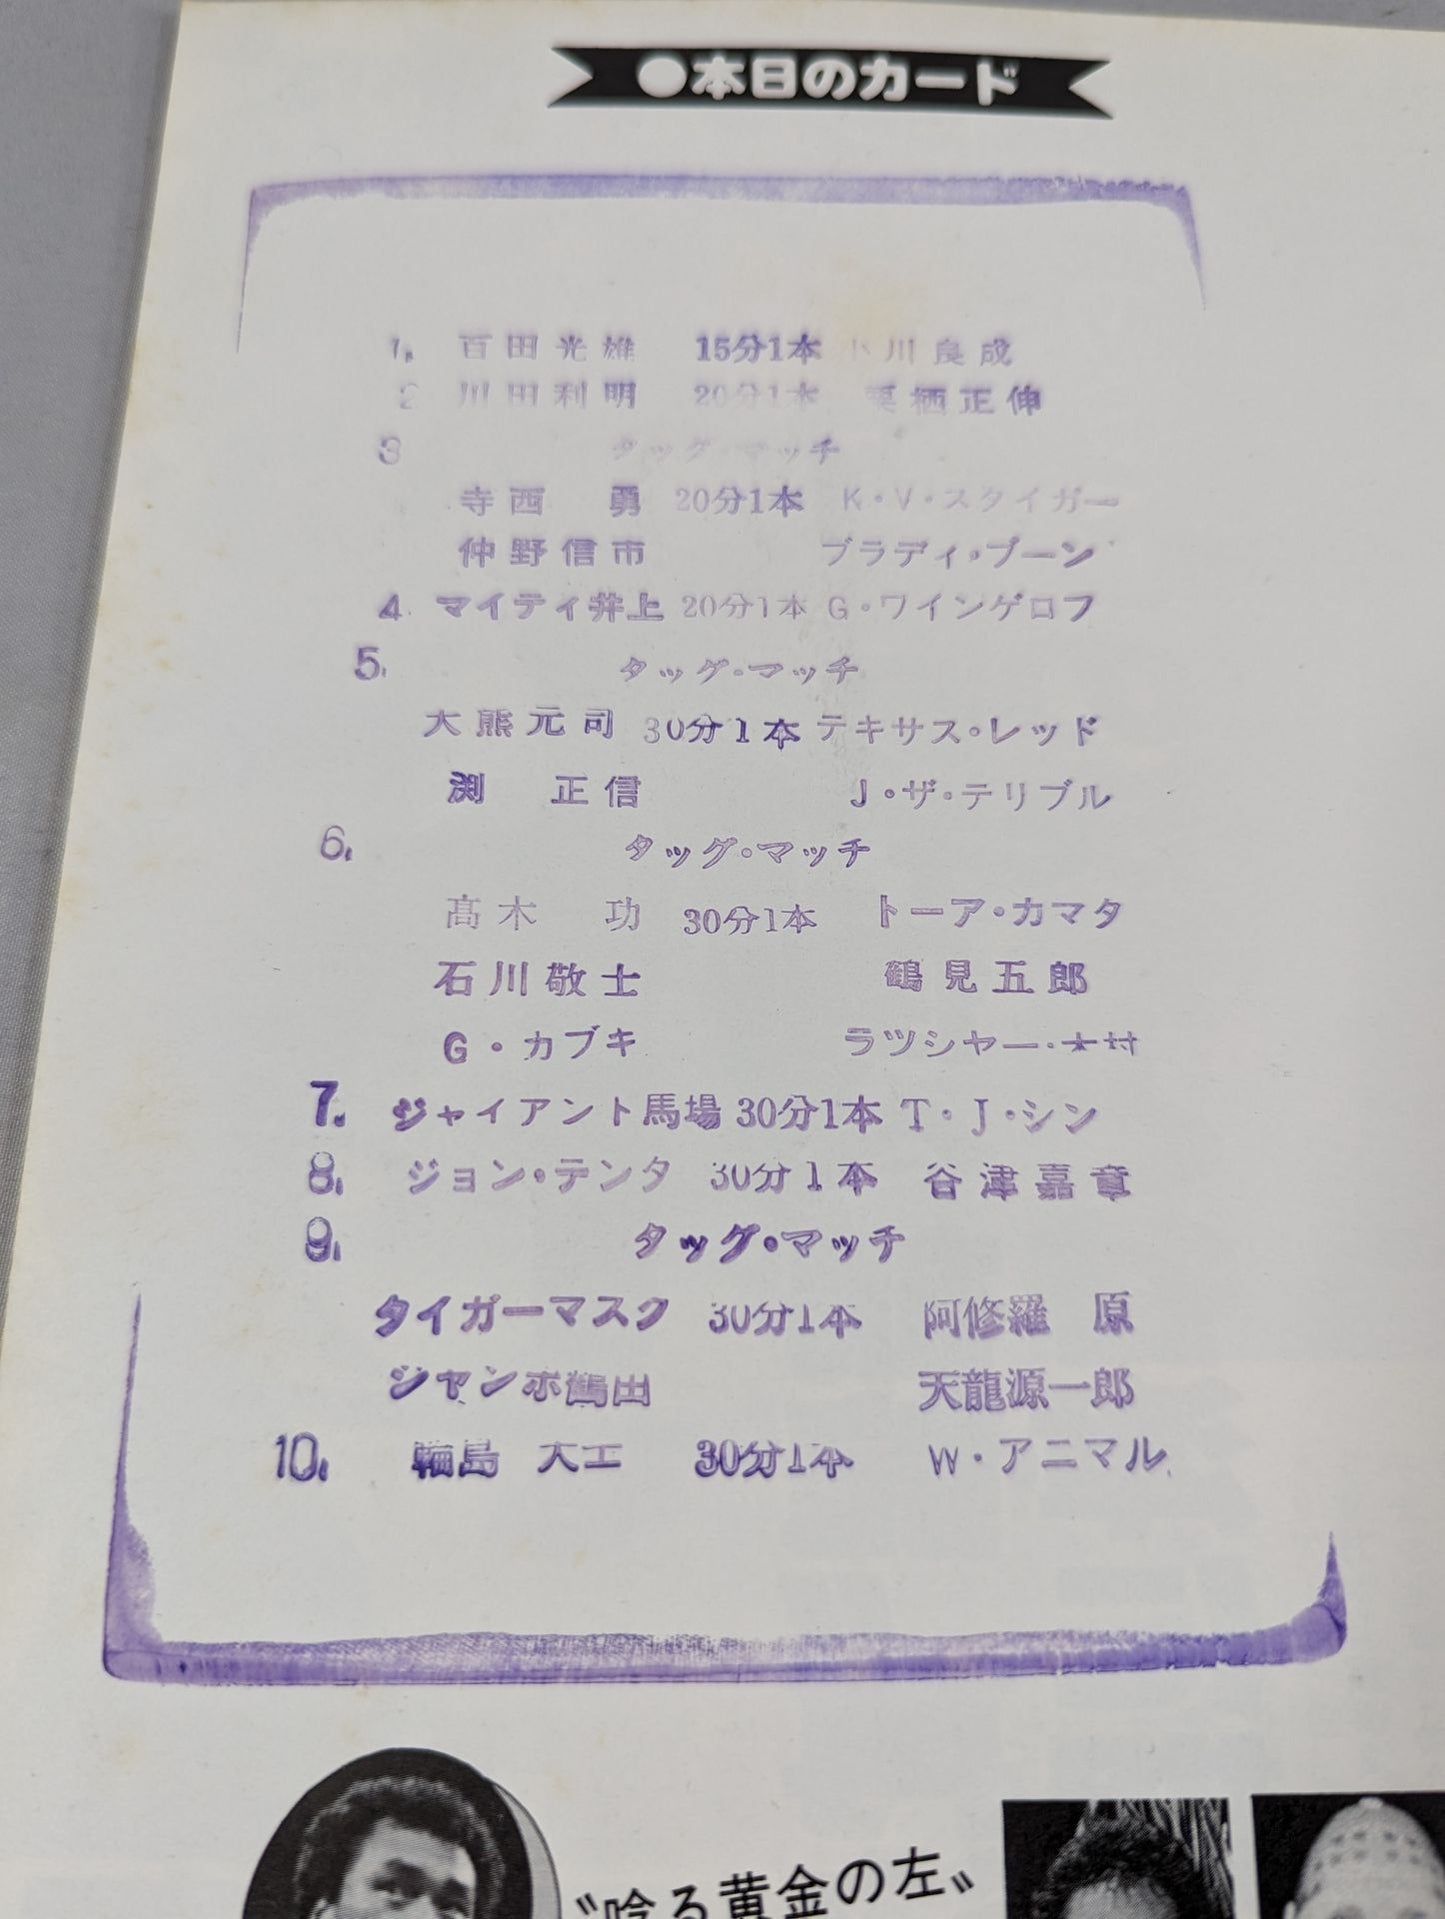 ●本日のカード
1. 百田光雄 15分1本 小川良成
2 川田利明 20分1本 栗栖正伸
3 タッグ・マッチ
寺西 勇 20分1本 K・V・スタイガー
仲野信市 ブラディ・ブーン
4. マイティ井上 20分1本 G・ワインゲロフ
5. タッグ・マッチ
大熊元司 30分1本 テキサス・レッド
渕 正信 J・ザ・テリブル
6. タッグ・マッチ
髙木 功 30分1本 トーア・カマタ
石川敬士 鶴見五郎
G・カブキ ラツシヤー・木村
7. ジャイアント馬場 30分1本 T・J・シン
8. ジョン・テンタ 30分1本 谷津嘉章
9. タッグ・マッチ
タイガーマスク 30分1本 阿修羅 原
ジャンボ鶴田 天龍源一郎
10. 輪島 大士 30分1本 W・アニマル
〝唸る黄金の左〟